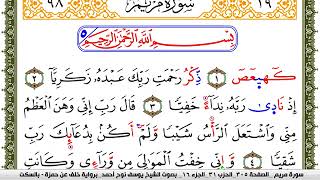 ١٩ سورة مريم ٩٨
بِسْمِ اللَّهِ الرَّحْمَٰنِ الرَّحِيمِ
كٓهيعٓصٓ ١ ذِكْرُ رَحْمَتِ رَبِّكَ عَبْدَهُۥ زَكَرِيَّآءَ ٢
إِذْ نَادَىٰ رَبَّهُۥ نِدَآءً خَفِيًّا ٣ قَالَ رَبِّ إِنِّى وَهَنَ ٱلْعَظْمُ
مِنِّى وَٱشْتَعَلَ ٱلرَّأْسُ شَيْبًا وَلَمْ أَكُنۢ بِدُعَآئِكَ رَبِّ
شَقِيًّا ٤ وَإِنِّى خِفْتُ ٱلْمَوَٰلِىَ مِن وَرَآءِى وَكَانَتِ
سورة مريم . الصفحة ٣٠٥ . الحزب ٣١ . الجزء ١٦ . بصوت الشيخ يوسف نوح أحمد . برواية خلف عن حمزة - بالسكت